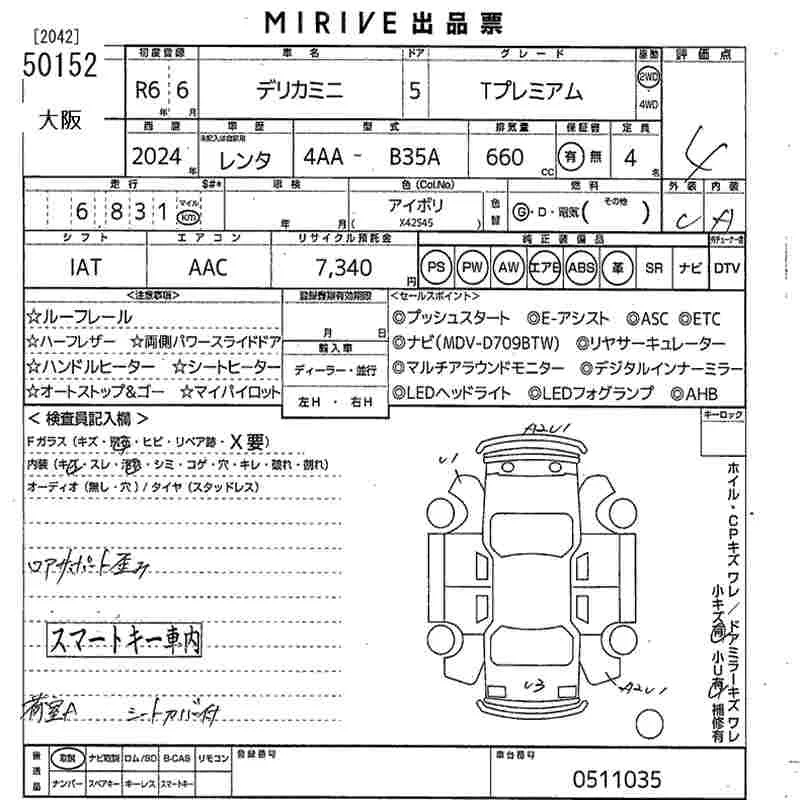 MIRIVE 出品票
[2042]
50152
大阪
初度登録 車名 ドア グレード 駆動 評価点
R6 6 年 月 デリカミニ 5 Tプレミアム 2WD 4WD
4
西暦 車歴 型式 排気量 保証書 定員
未記入は自家用
2024年 レンタ 4AA - B35A 660 CC 有 無 4 名
走行 $#* 車検 色(Col.No) 色替 燃料 外装 内装
6 831 マイル km 年 月 アイボリ ( X42S45 ) G・D・電気( その他 ) C A
シフト エアコン リサイクル預託金 純正装備品
IAT AAC 7,340円 PS PW AW エアB ABS 革 SR ナビ DTV
<注意事項> 登録書類有効期限 <セールスポイント>
☆ルーフレール 月 日 ◎プッシュスタート ◎E-アシスト ◎ASC ◎ETC
☆ハーフレザー ☆両側パワースライドドア 輸入車 ◎ナビ(MDV-D709BTW) ◎リヤサーキュレーター
☆ハンドルヒーター ☆シートヒーター ディーラー・並行 ◎マルチアラウンドモニター ◎デジタルインナーミラー
☆オートストップ&ゴー ☆マイパイロット 左H ・ 右H ◎LEDヘッドライト ◎LEDフォグランプ ◎AHB
<検査員記入欄> キーロック
Fガラス(キズ・飛石・ヒビ・リペア跡・X要)
内装(キズ・スレ・汚れ・シミ・コゲ・穴・キレ・破れ・剝れ)
オーディオ(無し・穴)/タイヤ(スタッドレス)
A2U1
U1
ロアサポート歪み
スマートキー車内
荷室A シートカバー付
U3
A2U1
ホイル・CPキズ ワレ/ドアミラーキズ ワレ
小キズ有 小U有 補修有
後送品 取説 ナビ取説 ロム/SD B-CAS リモコン 登録番号 車台番号
ナンバー スペアキー キーレス スマートキー 0511035